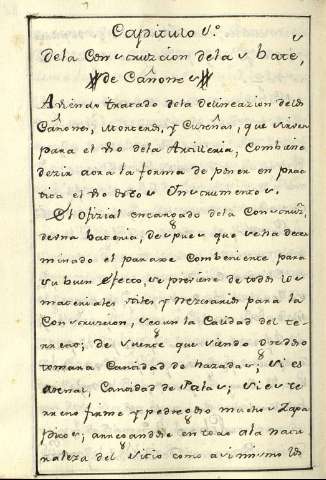 Capitulo V.º
de la Construczion de las bate,
de Cañones
Aviendo tratado de la delineazion de los
Cañones, Morteros, y Cureñas, que sirven
para el uso de la Artilleria, Combiene
dezir aora la forma de poner en prac
tica el uso destos Ynstrumentos.
El Ofizial encargado de la Construz.
de una bateria, despues que se ha deter
minado el paraxe Combeniente para
su buen efecto, se previene de todos los
materiales utiles y nezesarios para la
Construzion, segun la Calidad del te
rreno; de suerte que siendo
tomara Cantidad de hazadas; si es
arena, Cantidad de Palas; si es te
rreno firme y pedregoso muchos Zapa
Picos; arreglandose en todo a la natu
raleza del sitio como asimismo los